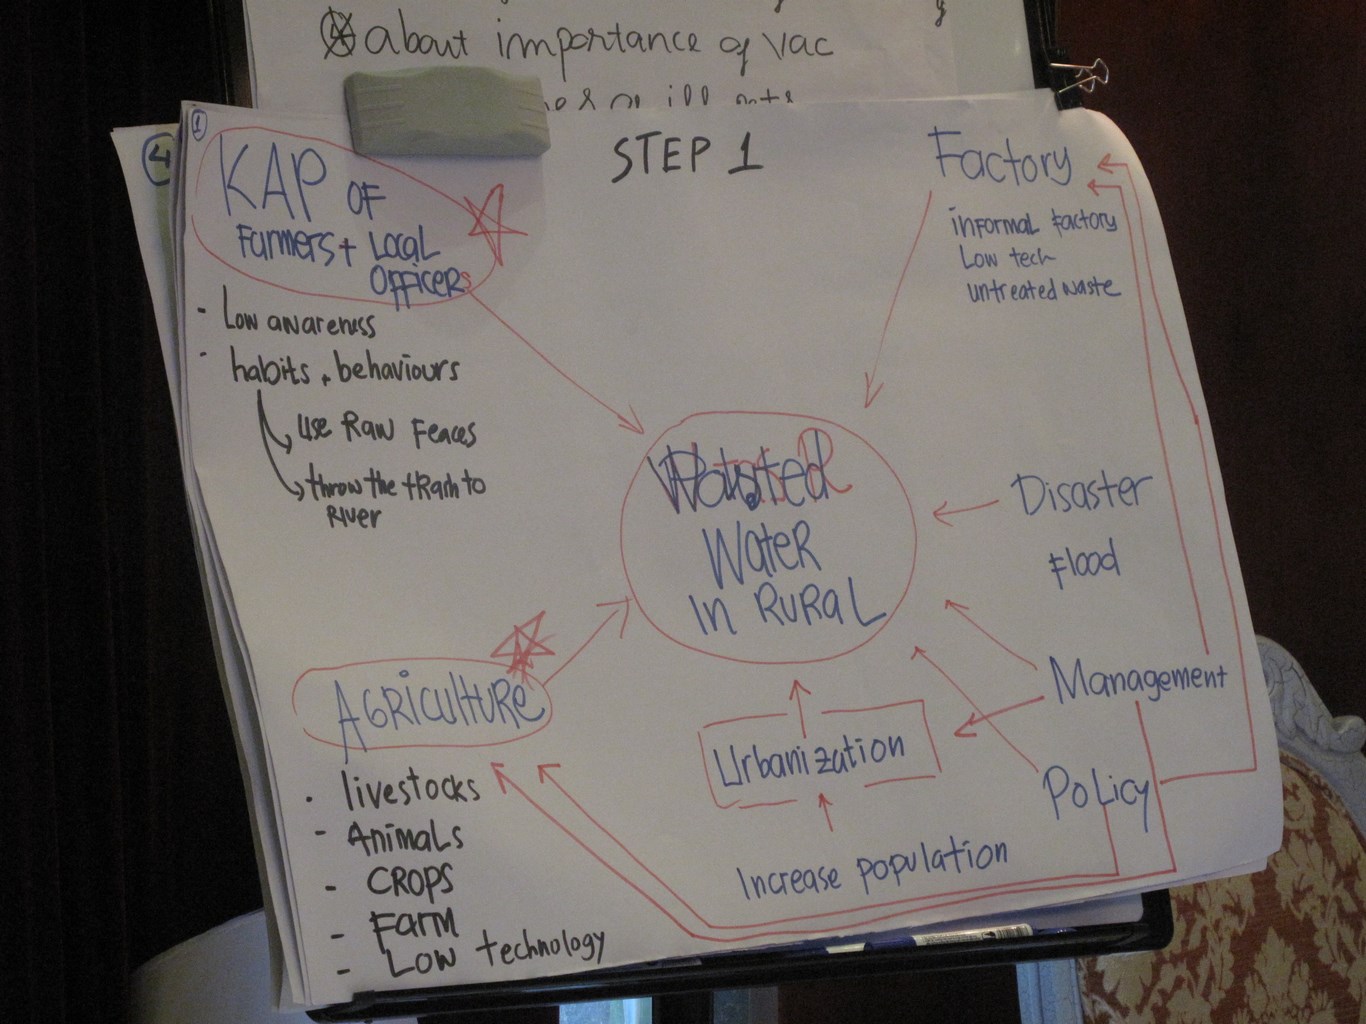 about importance of vac
STEP 1
1
4
KAP OF
Farmers + Local
Officers
- Low awareness
- habits, behaviours
use Raw Feaces
throw the trash to
River
Factory
informal factory
Low tech
untreated waste
Water
in Rural
Disaster
Flood
Management
Policy
Urbanization
Increase population
Agriculture
. livestocks
- Animals
- CROPS
- Farm
- Low technology